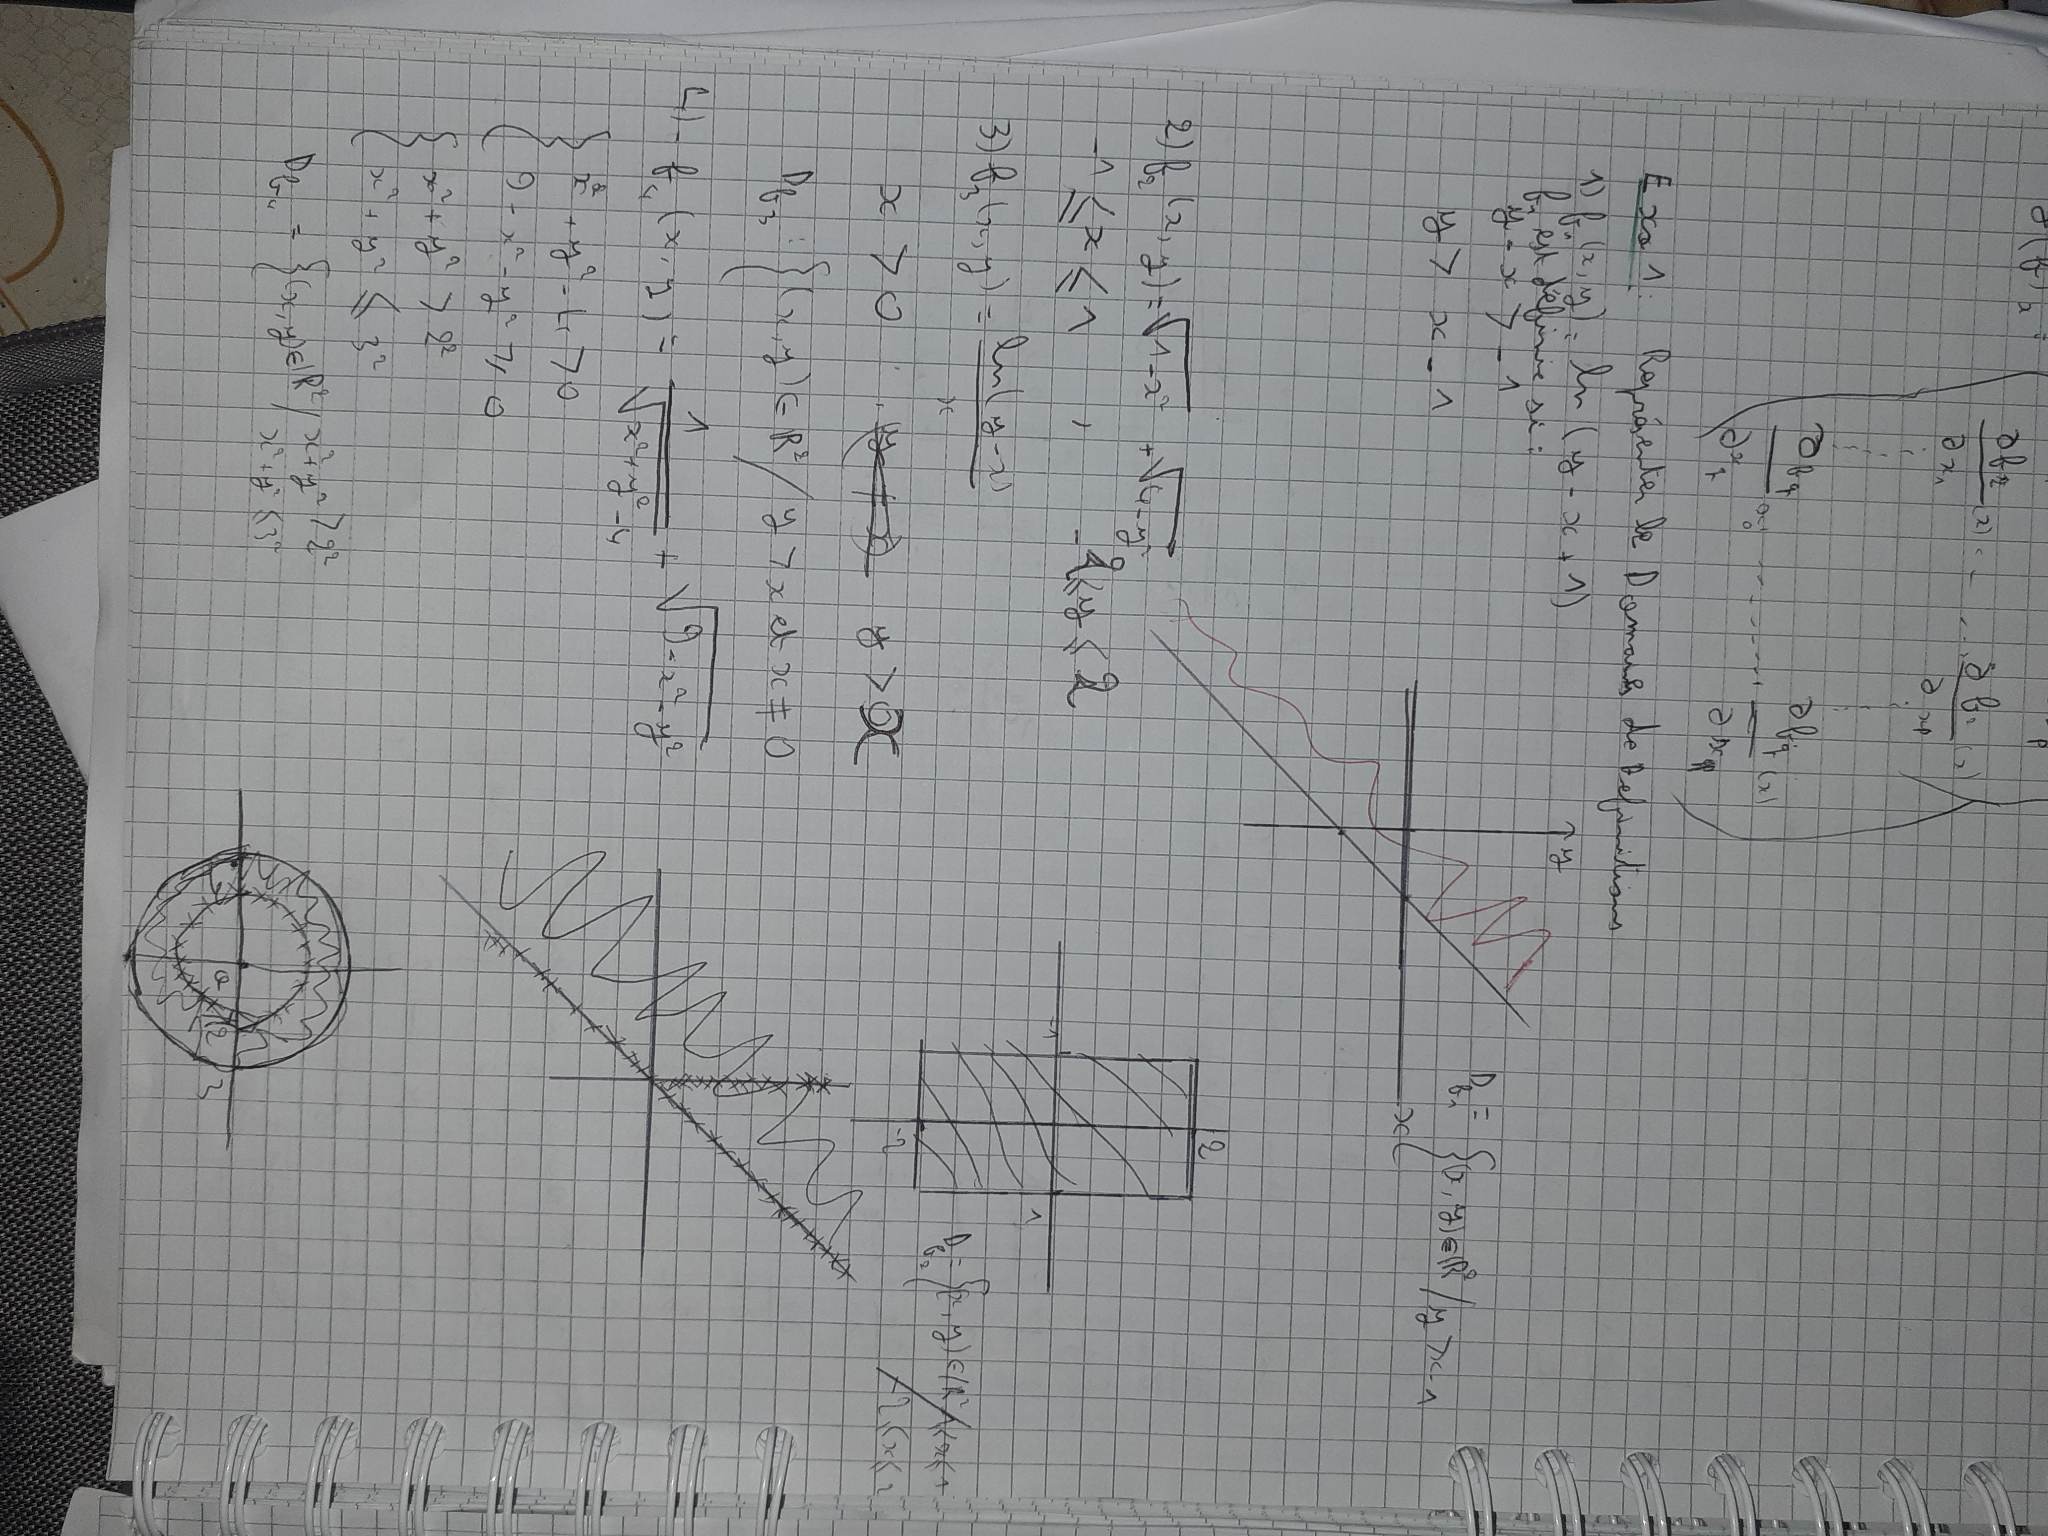 ∂f₂/∂x₁ (x) - - .... ∂f₂/∂xp (x)
∂fq/∂x₁ - - - - - - - ∂fq/∂xp (x)
Exo 1: Représenter le Domaines de Definitions
1) f₁(x, y) = ln (y - x + 1)
f₁ est définie si :
y - x > - 1
y > x - 1
y
x
D_f₁ = {(x, y) ∈ ℝ² / y > x - 1
2) f₂(x, y) = √(1 - x²) + √(4 - y²)
-1 ≤ x ≤ 1 , -2 ≤ y ≤ 2
2
-1
1
-2
D_f₂ = {(x, y) ∈ ℝ² / -1 ≤ x ≤ 1
-2 ≤ x ≤ 2
3) f₃(x, y) = ln(y - x)/x
x > 0 , y > x
D_f₃ : {(x, y) ∈ ℝ² / y > x et x ≠ 0
4) - f₄(x, y) = 1/√(x² + y² - 4) + √(9 - x² - y²)
{ x² + y² - 4 > 0
9 - x² - y² ≥ 0
{ x² + y² > 2²
x² + y² ≤ 3²
D_f₄ = {(x, y) ∈ ℝ² / x² + y² > 2²
x² + y² ≤ 3²
0
2
3